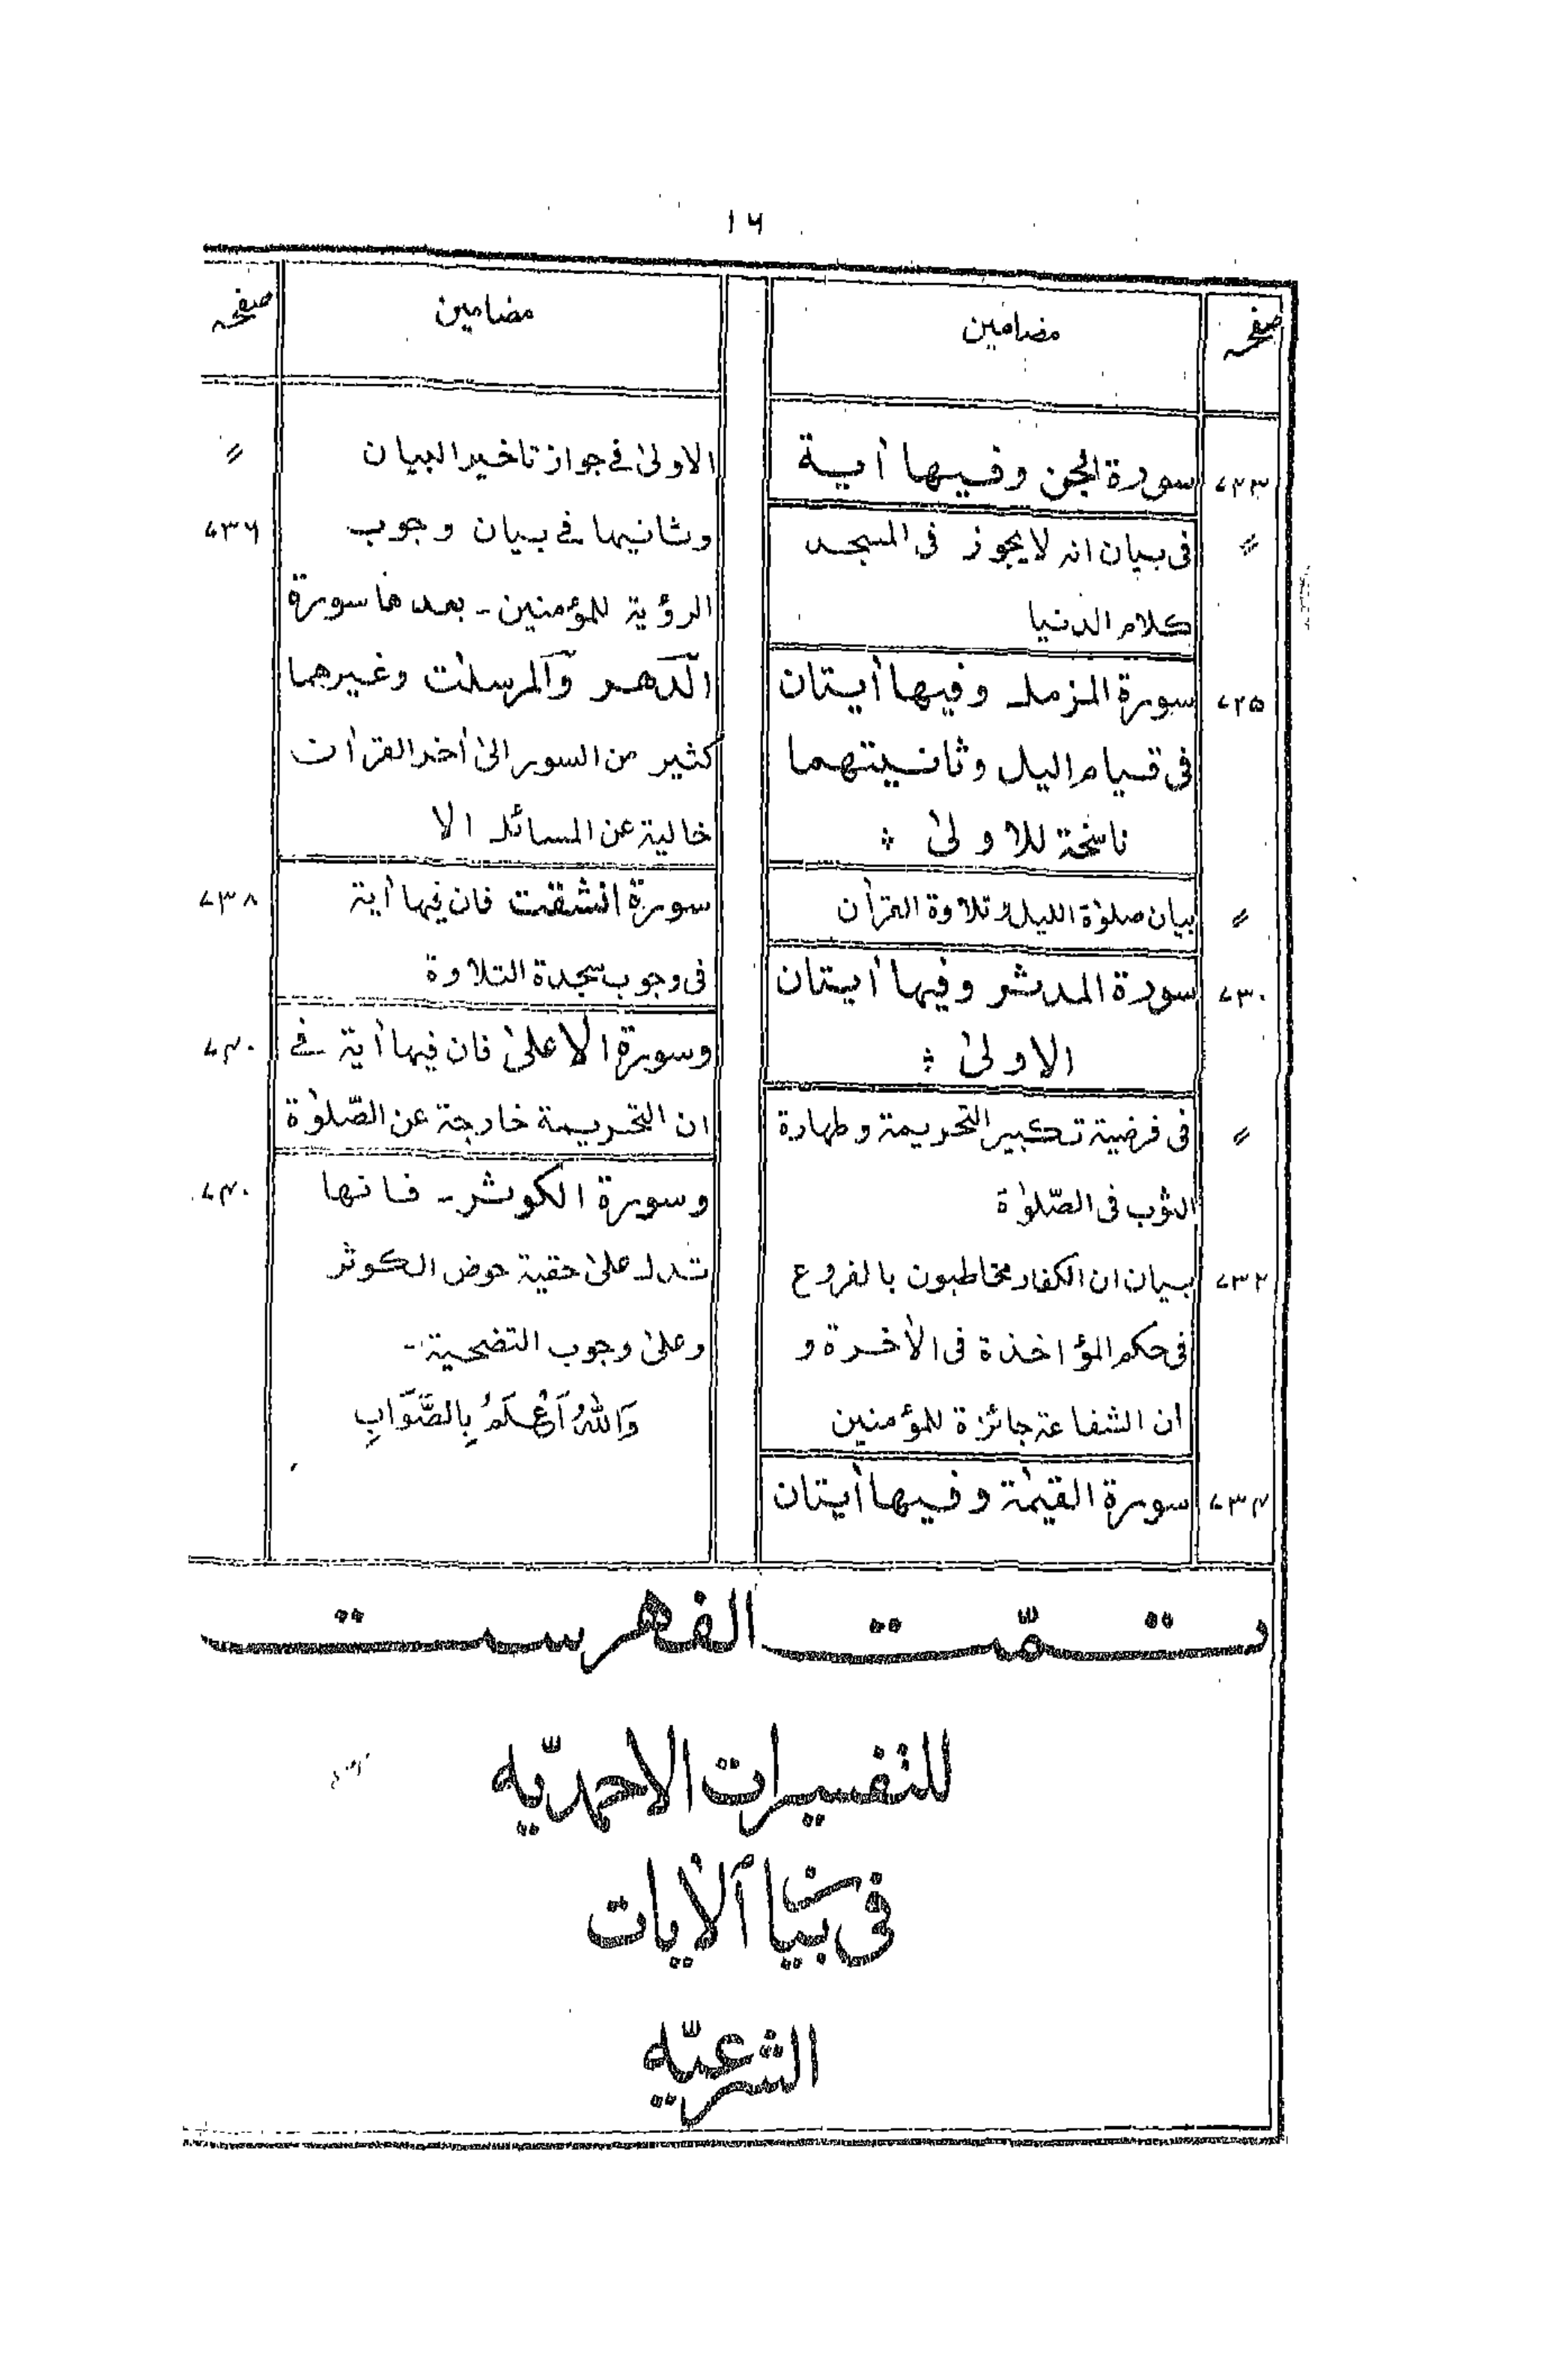 ۱۶
صفحہ مضامين
۷۲۳ سورة الجن وفيها أية
〃 فى بيان انه لا يجوز فى المسجد
كلام الدنيا
۷۲۵ سورة المزمل وفيها أيتان
فى قيام اليل وثانيتهما
ناسخة للاولىٰ ؞
〃 بيان صلوٰة الليل وتلاوة القرأن
۷۳۰ سورة المدثر وفيها أيتان
الاولىٰ ؞
〃 فى فرضية تكبير التحريمة وطهارة
الثوب فى الصّلوٰة
۷۳۲ بيان ان الكفار مخاطبون بالفروع
فى حكم المؤاخذة فى الأخرة و
ان الشفاعة جائزة للمؤمنين
۷۳۴ سورة القيمٰة وفيها أيتان
مضامين صفحہ
الاولىٰ فے جواز تاخير البيان 〃
وثانيها فے بيان وجوب ۷۳۶
الرؤية للمؤمنين ۔ بعدها سورة
الدّهر وّالمرسلٰت وغيرهما
كثير من السور الىٰ أخر القرأن
خالية عن المسائل الا
سورة انشقت فان فيها أية ۷۳۸
فى وجوب سجدة التلاوة
وسورة الاعلىٰ فان فيها أية فے ۷۴۰
ان التحريمة خارجة عن الصّلوٰة
وسورة الكوثر ۔ فانها ۷۴۰
تدل علىٰ حقية حوض الكوثر
وعلىٰ وجوب التضحية ۔
وَاللهُ اَعْلَمُ بِالصَّوَابِ
تمّت الفهرست
للتفسيرات الاحمديّه
فى بيان الأيات
الشرعيّه